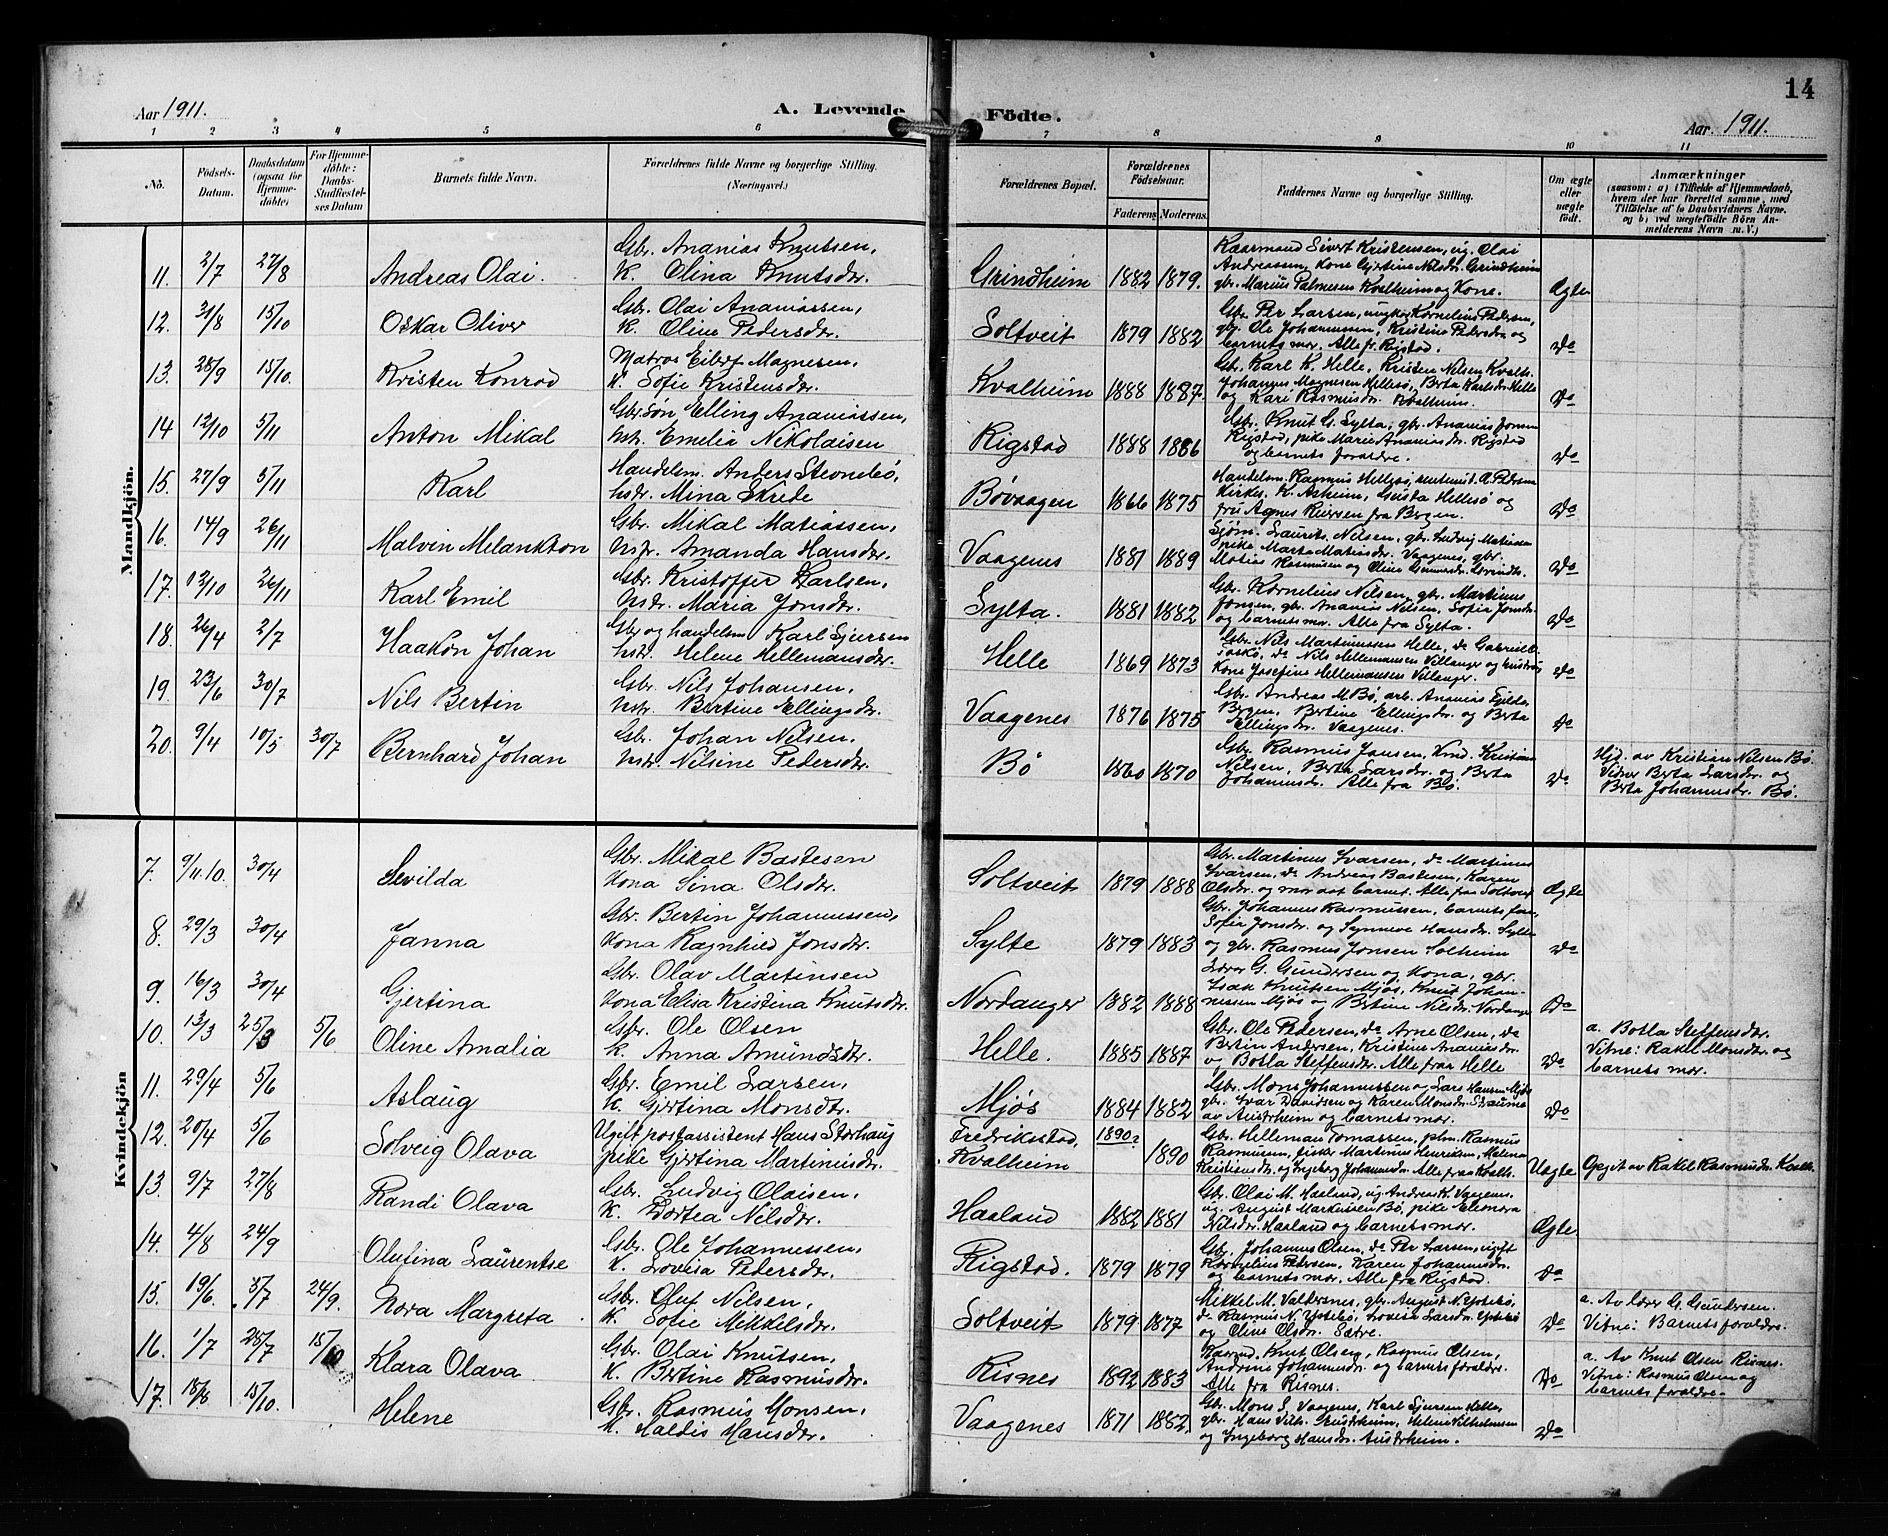 14
Aar 1911. A. Levende Födte. Aar 1911.
1 2 3 4 5 6 7 8 9 10 11
No. Födsels-Datum. Daabsdatum (ogsaa for Hjemmedöbte) For Hjemmedöbte: Daabs-Stadfæstelses Datum Barnets fulde Navn. Forældrenes fulde Navne og borgerlige Stilling. (Næringsvei.) Forældrenes Bopæl. Forældrenes Födselsaar. Faderens Moderens. Faddernes Navne og borgerlige Stilling. Om ægte eller uægte födt. Anmærkninger (saasom: a) i Tilfælde af Hjemmedaab, hvem der har forrettet samme, med Tilföielse af to Daabsvidners Navne, og b) ved uægtefödte Börn Anmelderens Navn m. V.)
Mandkjön.
11. 2/7 27/8 Andreas Olai. Gbr. Ananias Knutsen, K. Olina Knutsdr. Grindheim 1882 1879. Kaarmand Sivert Kristensen, ug. Olai
Andreassen, Kone Gjertine Nilsdr. Grindheim
gbr. Marius Palmesen Kvalheim og Kone. Ægte
12. 31/8 15/10 Oskar Oliver Gbr. Olai Ananiassen, K. Oline Pedersdr. Soltveit 1879 1882 Gbr. Per Larsen, ungkar Kornelius Pedersen,
gbr. Ole Johannessen, Kristine Pedersdr. og
barnets mor. Alle fr. Rigstad. Do
13. 25/9 15/10. Kristen Konrad Matros Eilert Magnesen, K. Sofie Kristensdr. Kvalheim 1888 1887 Gbr. Karl K. Helle, Kristen Nilsen Kvalh.
Johannes Magnesen Hellesø, Berta Karlsdr. Helle
og Kari Rasmusdr. Kvalheim. Do
14 12/10 5/11 Anton Mikal Gbr.søn Elling Ananiassen, hstr. Emelia Nikolaisen Rigstad 1888 1886 Gbr. Knut G. Sylta, gbr. Ananias Jonsen
Rigstad, pike Marie Ananiasdr. Rigstad
og barnets foreldre. Do
15. 27/9 5/11 Karl Handelsm. Anders Steenebø, hstr. Mina Skrede Bøvaagen 1866 1875 Handelsm. Rasmus Hellesø, A. Pedersen
Kirkes, K. Askeim, Gusta Hellesø og
fru Agnes fra Bergen. Do
16. 14/9 26/11 Malvin Melankton Gbr. Mikal Matiassen, hstr. Amanda Hansdr. Vaagenes 1881 1889 Sjøm. Laurits Nilsen, gbr. Ludvig Matiassen
pike Marta Matiasdr. Vaagenes, gbr.
Matias Rasmusen og Oline Gunnersdr. Do
17. 12/10 26/11 Karl Emil Gbr. Kristoffer Karlsen, hstr. Maria Jonsdr. Sylta. 1881 1882 Gbr. Kornelius Nilsen, gbr. Martinus
Jonsen, gbr. Ananias Nilsen, Sofia Jonsdr.
og barnets mor. Alle fra Sylta. Do
18. 26/4 2/7 Haakon Johan Gbr og handelsm Karl Sjursen hstr. Helene Hellemansdr. Helle 1869 1873 Gbr. Nils Martinussen Helle, do Gabriel
Toskø, do Nils Hellemansen Villanger og hustru
Kone Josefine Hellemansen Villanger. Do
19. 23/6 30/7 Nils Bertin Gbr. Nils Johansen, hstr. Bertine Ellingsdr. Vaagenes 1876 1875 Gbr. Andreas M. Bø, arb. Ananias
Bergen, Bertine Ellingsdr. og Berta
Ellingsdr. Vaagenes. Do
20. 9/4 10/5 30/7 Bernhard Johan Gbr. Johan Nilsen. hstr. Nilsine Pedersdr. Bø 1860 1870 Gbr. Rasmus Jansen, Kristian
Nilsen, Berta Larsdr. og Berta
Johannesdr. Alle fra Bø. Do Hjd. av Kristian Nilsen Bø.
Vitner Berta Larsdr. og
Berta Johannesdr. Bø.
Kvindekjön
7. 9/11.10. 30/4 Sevilda Gbr. Mikal Bastesen Kona Sina Olsdr. Soltveit 1879 1888 Gbr. Martinus Ivarsen, do Martinus
Ivarsen, do Andreas Bastesen, Karen
Olsdr. og mor aat barnet. Alle fra Soltveit Ægte
8. 29/3 30/4 Janna Gbr. Bertin Johannessen, Kona Ragnhild Jonsdr. Sylte 1879 1883 Gbr. Johannes Rasmussen, barnets far,
Sofia Jonsdr. og Synneve Hansdr. Sylte
og gbr. Rasmus Jonsen Solheim Do
9. 16/3 30/4 Gjertina Gbr. Olav Martinsen Kona Elisa Kristina Knutsdr. Nordanger 1882 1888 Lærer G. Gundersen og Kona, gbr.
Isak Knutsen Mjøs, Knut Johannessen
Mjøs og Bertine Nilsdr. Nordanger Do
10. 13/3 25/3 5/6 Oline Amalia Gbr. Ole Olsen K. Anna Amundsdr. Helle. 1885 1887 Gbr. Ole Pedersen, do Arne Olsen, do
Bertin Andersen, Kristine Ananiasdr.
og Botla Steffensdr. Alle fraa Helle Do a. Botla Steffensdr.
Vitne: Rakel Monsdtr og
barnets mor.
11. 29/4 5/6 Aslaug Gbr. Emil Larsen, K. Gjertina Monsdtr. Mjøs 1884 1882 Gbr. Mons Johannessen og Lars Hansen Mjøs
gbr. Ivar Davidsen og Karen Monsdr. Straume
av Austrheim og barnets mor. Do
12. 20/4 5/6 Solveig Olava Ugift postassistent Hans Storhaug pike Gjertina Martinusdr. Fredriksstad, Kvalheim 1890? 1890 Gbr. Helleman Tomassen, plm. Rasmus
Rasmussen, fisker Martines Henriksen, Malena
Kristensdr. og Ingeborg Johannesdr. Alle fraa Kvalh. Uægte Opgit av Rakel Rasmusdr. Kvalh.
13. 9/7 27/8 Randi Olava Gbr. Ludvig Olaisen, K. Dortea Nilsdr. Haaland 1882 1881 Gbr. Olai M. Haaland, ug. Andreas K. Vaagenes,
ug. August Markussen Bø, pike Eleonora
Nilsdr. Haaland og barnets mor. Ægte.
14. 4/8 24/9 Olufina Laurentse Gbr. Ole Johannessen, K. Lovisa Pedersdr. Rigstad. 1879 1879 Gbr. Johannes Olsen, do Per Larsen, ugift
Kornelius Petersen, Karen Johannesdr.
og barnets mor. Alle fra Rigstad. Do
15. 19/6. 5/7 24/9. Nora Margreta Gbr. Oluf Nilsen, K. Sofie Mikkelsdr. Soltveit 1879 1877 Mikkel M. Valdersnes, gbr. August N. Ypsesø
do Rasmus N. Ypsesø, Lovisa Larsdr. Ypsesø
og Oline Olsdr. Sætre. Do a. Av lærer G. Gundersen.
Vitne: Barnets foreldre.
16. 1/7 25/7 15/10 Klara Olava Gbr. Olai Knutsen, K. Bertine Rasmusdr. Risnes 1892 1883 Knut Olsen, Rasmus Olsen,
Andrine Johannesdr. og barnets foreldre.
Alle fra Risnes. Do a. Av Knut Olsen Risnes.
Vitne: Rasmus Olsen og
barnets foreldre.
17. 18/8. 15/10. Helene Gbr. Rasmus Monsen, K. Haldis Hansdr. Vaagenes 1871 1882. Gbr. Mons S. Vaagenes, Karl Sjursen Helle,
gbr. Hans Vilh. Austrheim, Helene Vilhelmsen
og Ingeborg Hansdr. Austrheim. Do